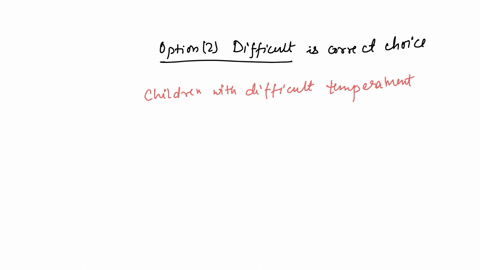 Option(2) Difficult is correct choice
Children with difficult temperament